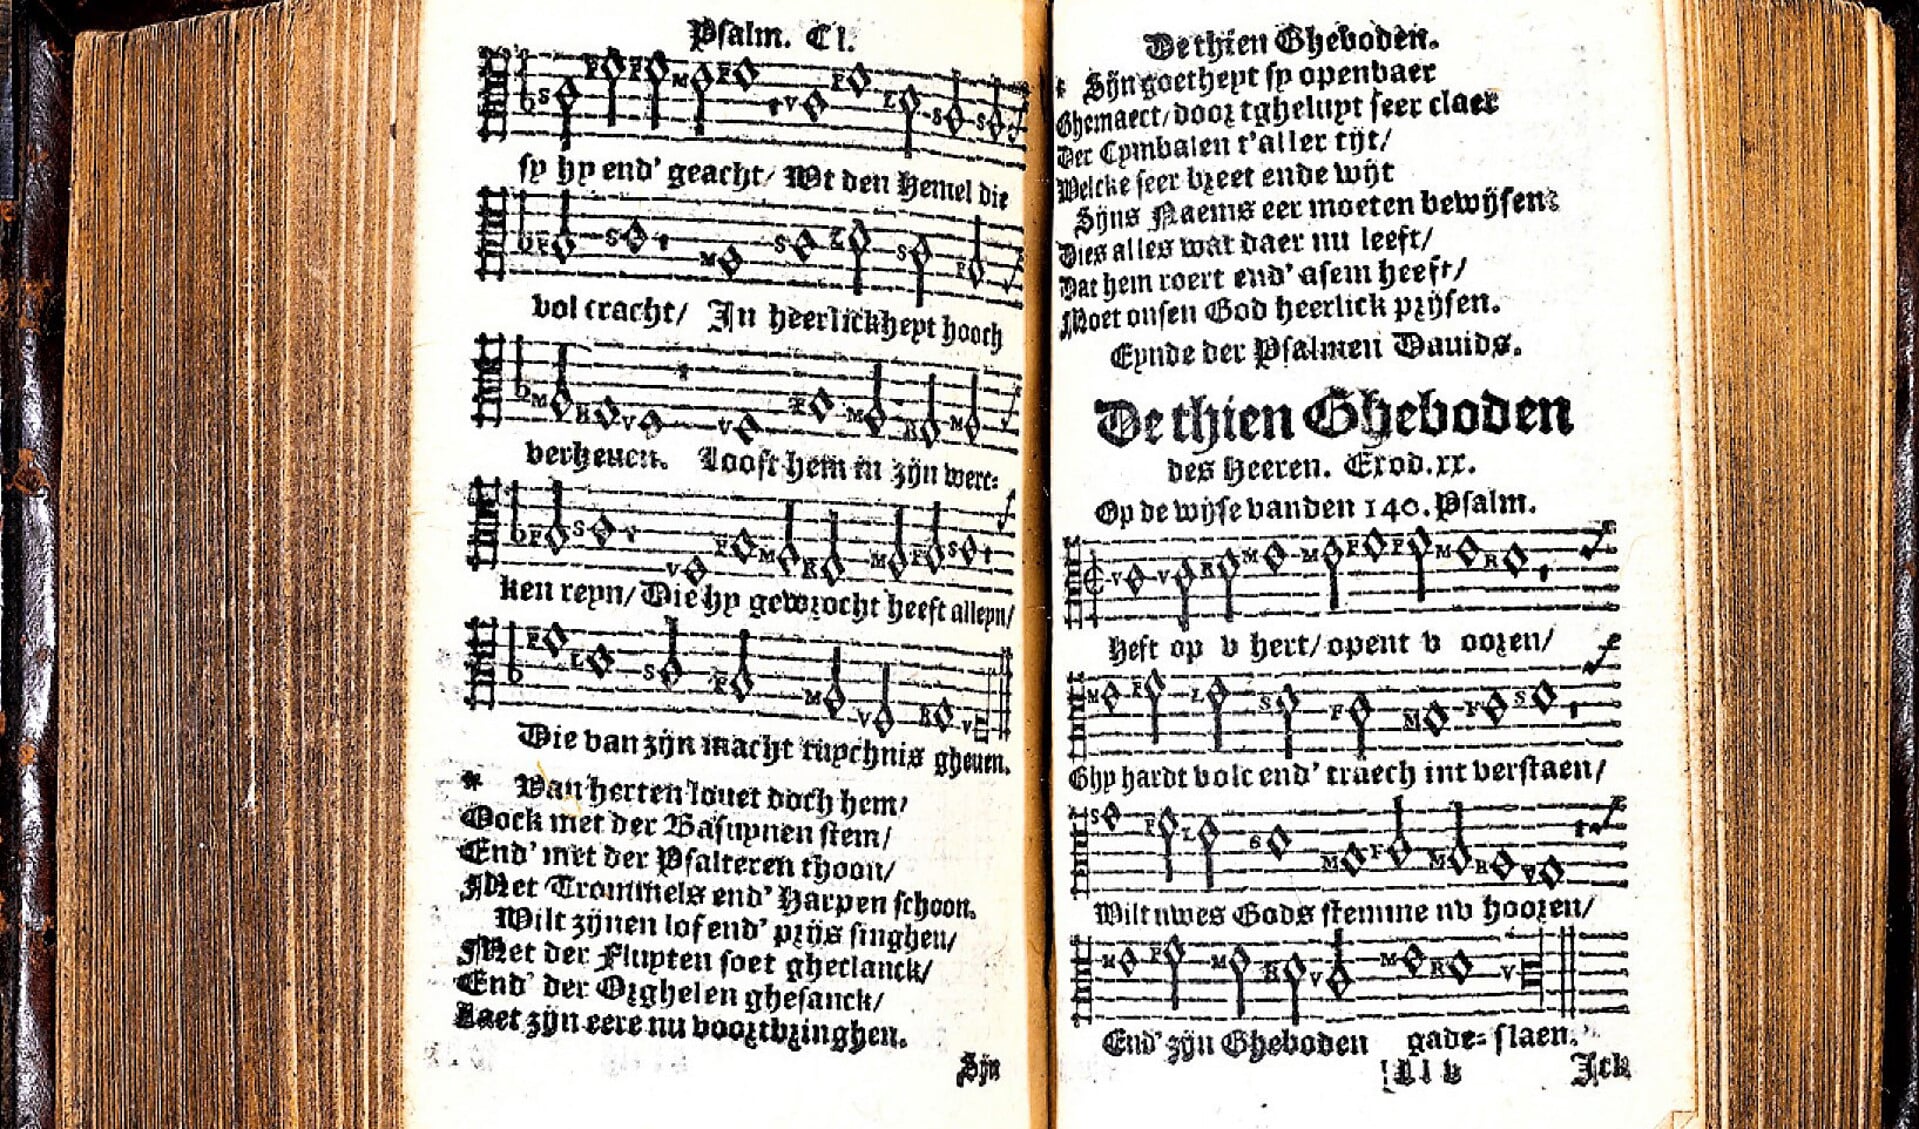 Psalm. Cl.
sy hy end' geacht/ Wt den Hemel die
vol cracht/ In heerlickheyt hooch
verheuen. Looft hem in zijn werc=
ken reyn/ Die hy gewrocht heeft alleyn/
Die van zijn macht tuychnis gheuen.
* Van herten louet doch hem/
Oock met der Basuynen stem/
End' met der Psalteren thoon/
Met Trommels end' Harpen schoon.
Wilt zijnen lof end' prijs singhen/
Met der Fluyten soet gheclanck/
End' der Orghelen ghesanck/
Laet zijn eere nu voortbringhen.
Sijn
De thien Gheboden.
* Sijn goetheyt sy openbaer
Ghemaect/ door tgheluyt seer claer
Der Cymbalen t'aller tijt/
Welcke seer breet ende wijt
Sijns Naems eer moeten bewijsen:
Dies alles wat daer nu leeft/
Dat hem roert end' asem heeft/
Moet onsen God heerlick prijsen.
Eynde der Psalmen Dauids.
De thien Gheboden
des Heeren. Exod.xx.
Op de wijse vanden 140. Psalm.
Heft op v hert/ opent v ooren/
Ghy hardt volc end' traech int verstaen/
Wilt uwes Gods stemme nv hooren/
End' zijn Gheboden gade= slaen.
Ick